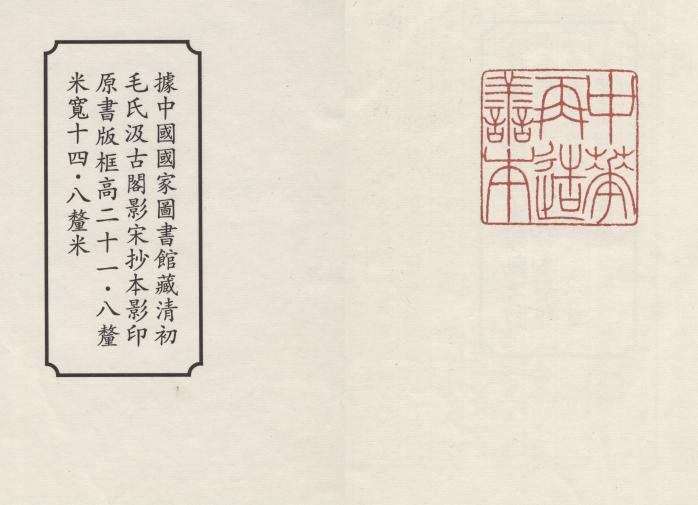 中華
再造
善本
據中國國家圖書館藏清初
毛氏汲古閣影宋抄本影印
原書版框高二十一·八釐
米寬十四·八釐米